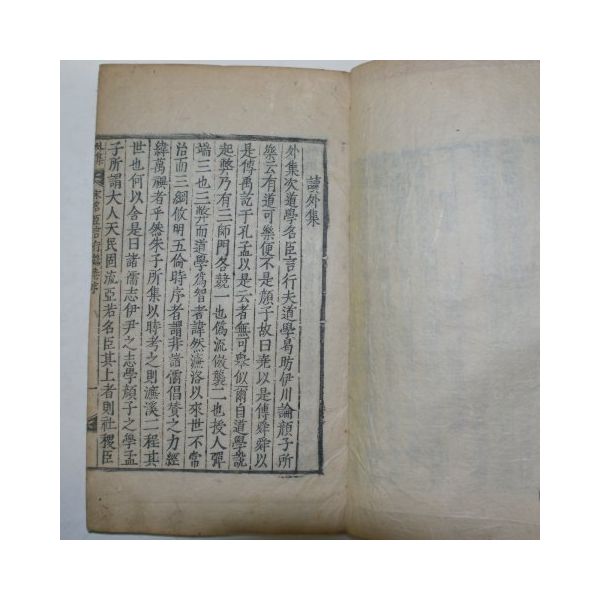 讀外集
外集次道學名臣言行夫道學曷昉伊川論顔子所
樂云有道可樂便不是顔子故曰堯以是傳舜舜以
是傳禹訖于孔孟以是云者無可舉似爾自道學說
起弊乃有三師門各競一也僞流倣襲二也授人彈
端三也三弊而道學爲智者諱然濂洛以來世不常
治而三綱攸明五倫時序者謂非諸儒倡贊之力經
緯萬禩者乎然朱子所集以時考之則濂溪二程其
世也何以舍是曰諸儒志伊尹之志學顔子之學孟
子所謂大人天民固流亞若名臣其上者則社稷臣
外集 宋名臣言行錄集序 一